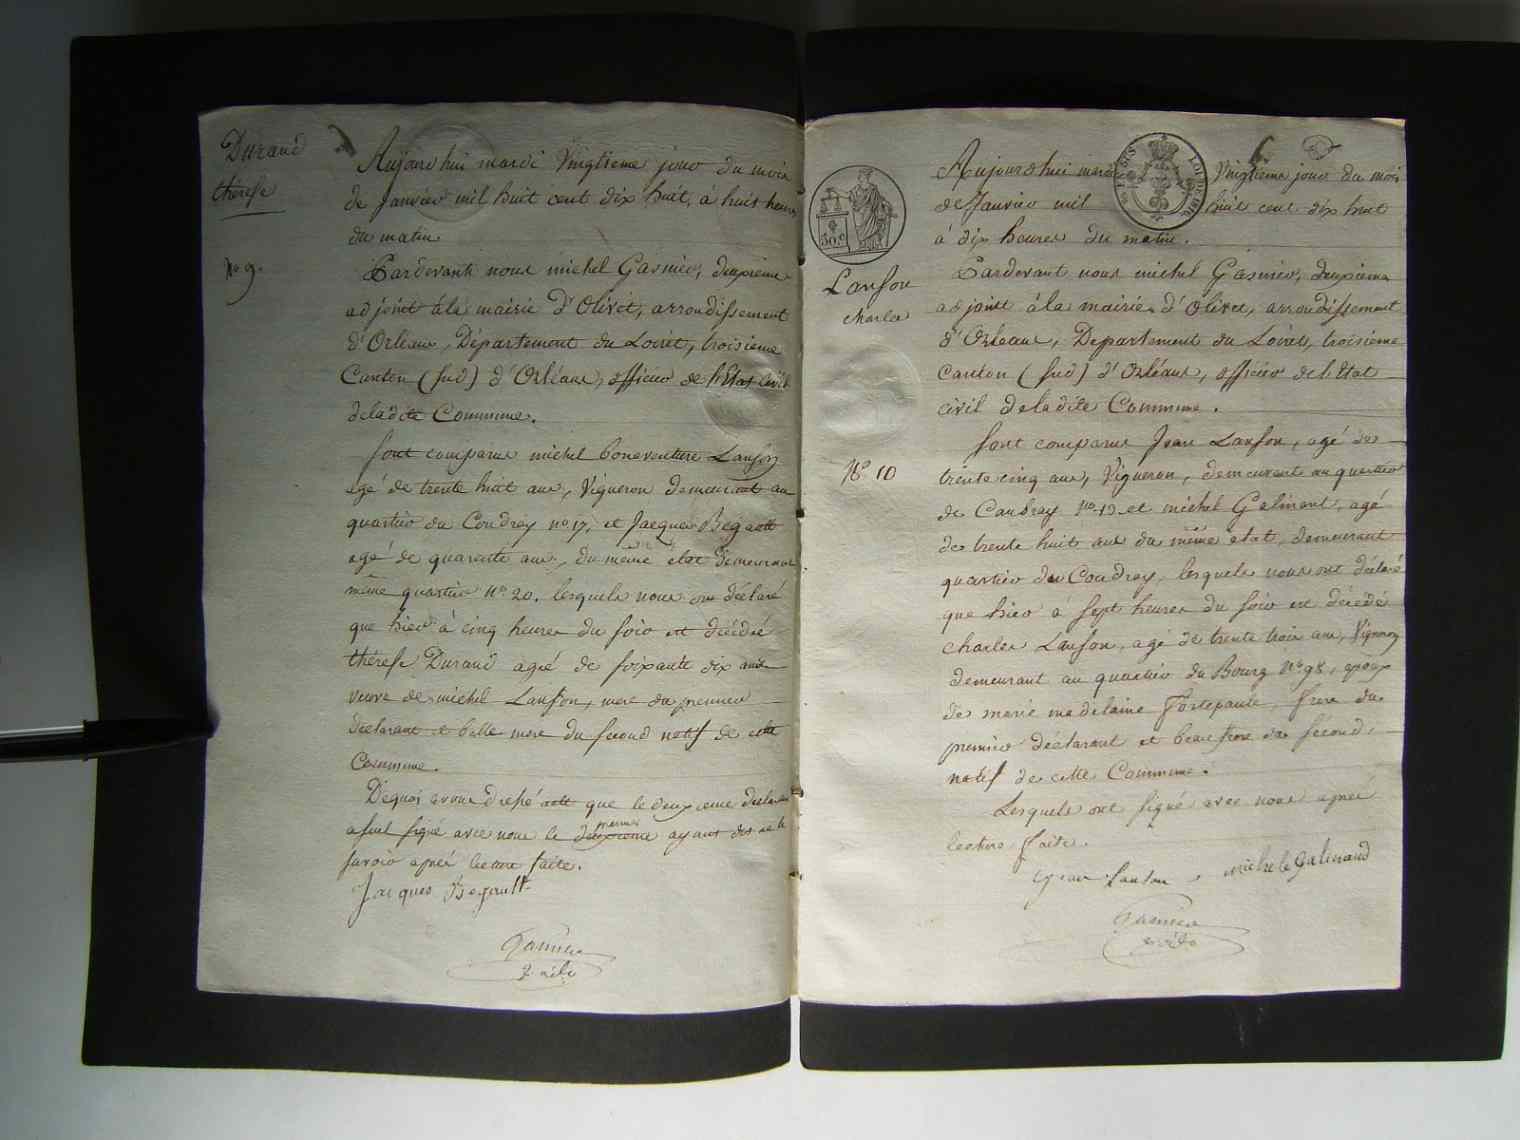 Durand
thérese
No 9.
Aujourdhui mardi Vingtieme jour du mois
de Janvier mil huit cent dix huit, à huit heures
du matin
Pardevant nous michel Gasnier, deuxieme
adjoint à la mairie d'Olivet, arrondissement
d'Orleans, Département du Loiret, troisieme
Canton (sud) d'Orléans, officier de l'Etat Civil
de ladite Commune.
sont comparus michel bonaventure Lanson
agé de trente huit ans, Vigneron demeurant au
quartier du Coudray no 17, et Jacques Begault
agé de quarante ans, du même etat demeurant
même quartier No 20. lesquels nous ont déclaré
que hier à cinq heures du soir est décédé
thérese Durand agée de soixante dix ans
veuve de michel Lanson, mere du premier
déclarant et belle mere du second natif de cette
Commune.
Dequoi avons dressé acte que le deuxieme declarant
a seul signé avec nous le premier ayant dit ne le
savoir après lecture faite.
Jacques Begault
Gasnier
30c
LOI DE 1816
Lanson
charles
No 10
Aujourdhui mardi Vingtieme jour du mois
de Janvier mil huit cent dix huit
à dix heures du matin.
Pardevant nous michel Gasnier, deuxieme
adjoint à la mairie d'Olivet, arrondissement
d'Orleans, Departement du Loiret, troisieme
Canton (sud) d'Orléans, officier de l'Etat
civil de ladite Commune.
sont comparus Jean Lanson, agé de
trente cinq ans, Vigneron, demeurant au quartier
de Caubray No 19 et michel Galinant, agé
de trente huit ans du même état, demeurant
quartier du Coudray, lesquels nous ont déclaré
que hier à sept heures du soir est décédé
charles Lanson, agé de trente trois ans, Vigneron
demeurant au quartier du Bourg No 98, epoux
de marie madelaine Fortepaule, frere du
premier déclarant et beau frere du second,
natif de cette Commune.
Lesquels ont signé avec nous après
lecture faite.
Jean Lanson michel Galinand
Gasnier